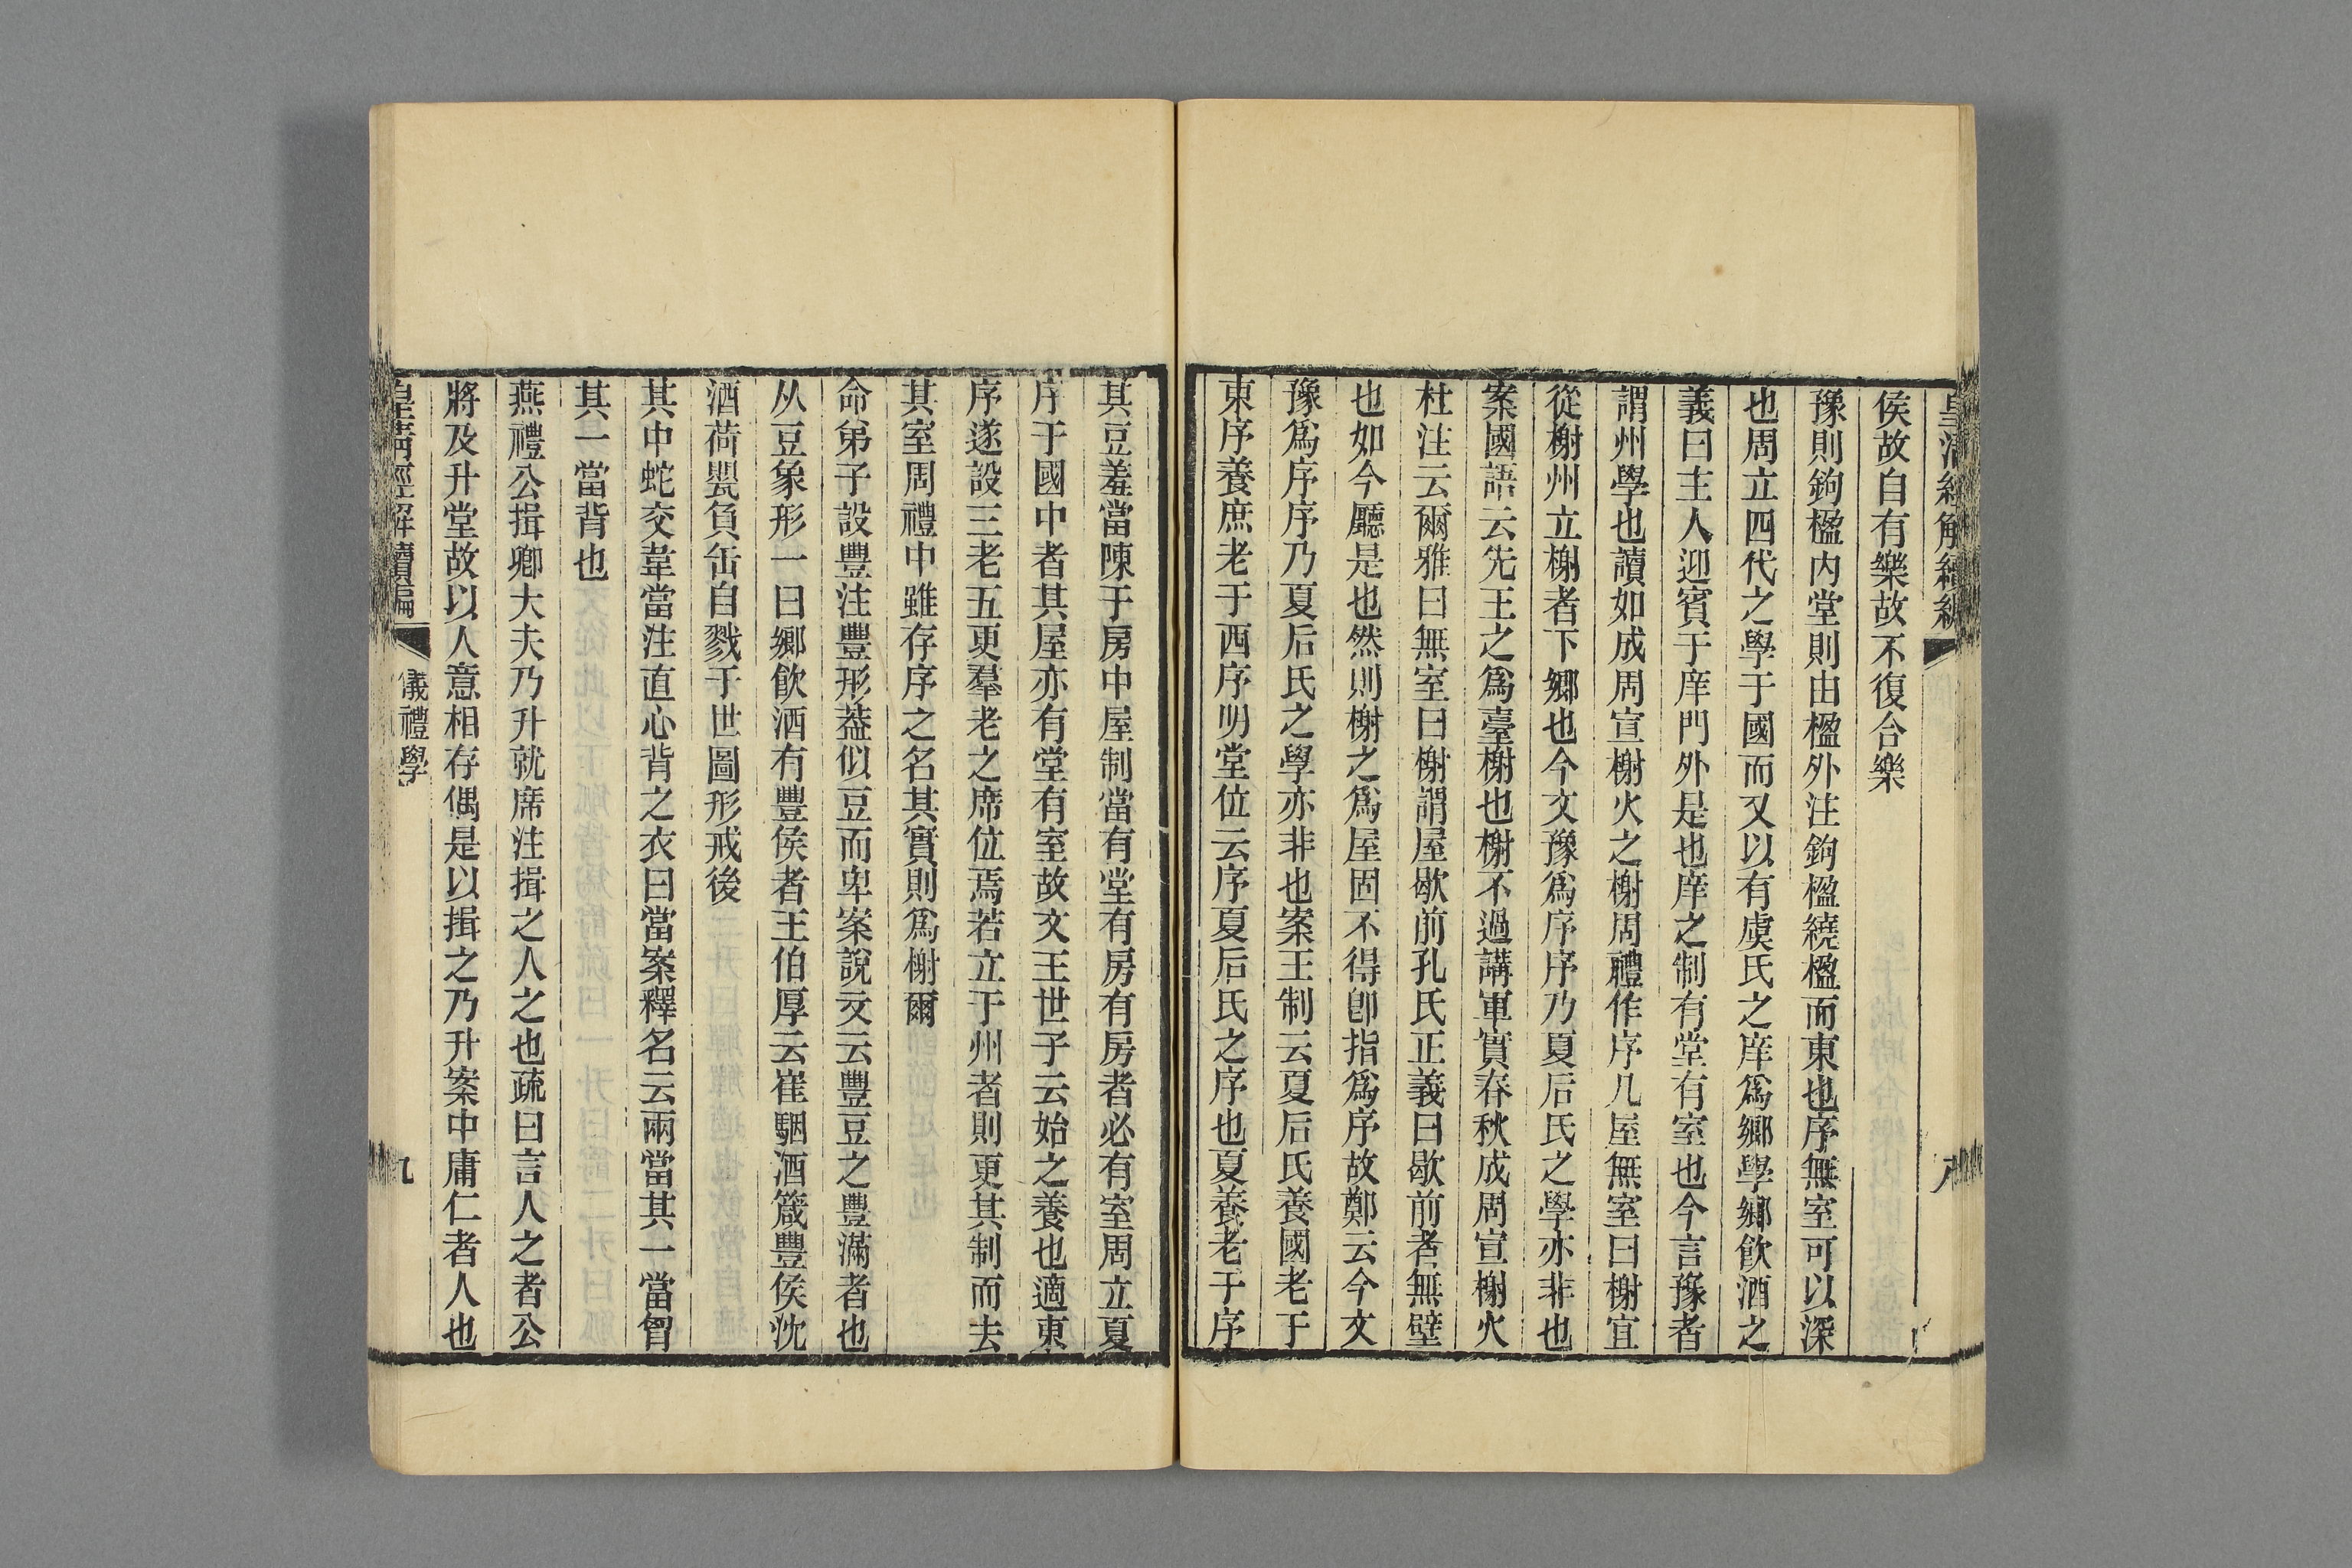 皇清經解續編
八
侯故自有樂故不復合樂
豫則鉤楹內堂則由楹外注鉤楹繞楹而東也序無室可以深
也周立四代之學于國而又以有虞氏之庠爲鄉學鄉飮酒之
義曰主人迎賓于庠門外是也庠之制有堂有室也今言豫者
謂州學也讀如成周宣榭火之榭周禮作序凡屋無室曰榭宜
從榭州立榭者下鄉也今文豫爲序序乃夏后氏之學亦非也
案國語云先王之爲臺榭也榭不過講軍實春秋成周宣榭火
杜注云爾雅曰無室曰榭謂屋歇前孔氏正義曰歇前者無壁
也如今廳是也然則榭之爲屋固不得卽指爲序故鄭云今文
豫爲序序乃夏后氏之學亦非也案王制云夏后氏養國老于
東序養庶老于西序明堂位云序夏后氏之序也夏養老于序
其豆羞當陳于房中屋制當有堂有房有房者必有室周立夏
序于國中者其屋亦有堂有室故文王世子云始之養也適東
序遂設三老五更羣老之席位焉若立于州者則更其制而去
其室周禮中雖存序之名其實則爲榭爾
命弟子設豐注豐形葢似豆而卑案說文云豐豆之豐滿者也
从豆象形一曰鄉飮酒有豐侯者王伯厚云崔駰酒箴豐侯沈
酒荷甖負缶自戮于世圖形戒後
其中蛇交韋當注直心背之衣曰當案釋名云兩當其一當胷
其一當背也
燕禮公揖卿大夫乃升就席注揖之人之也疏曰言人之者公
將及升堂故以人意相存偶是以揖之乃升案中庸仁者人也
皇清經解續編
儀禮學
九